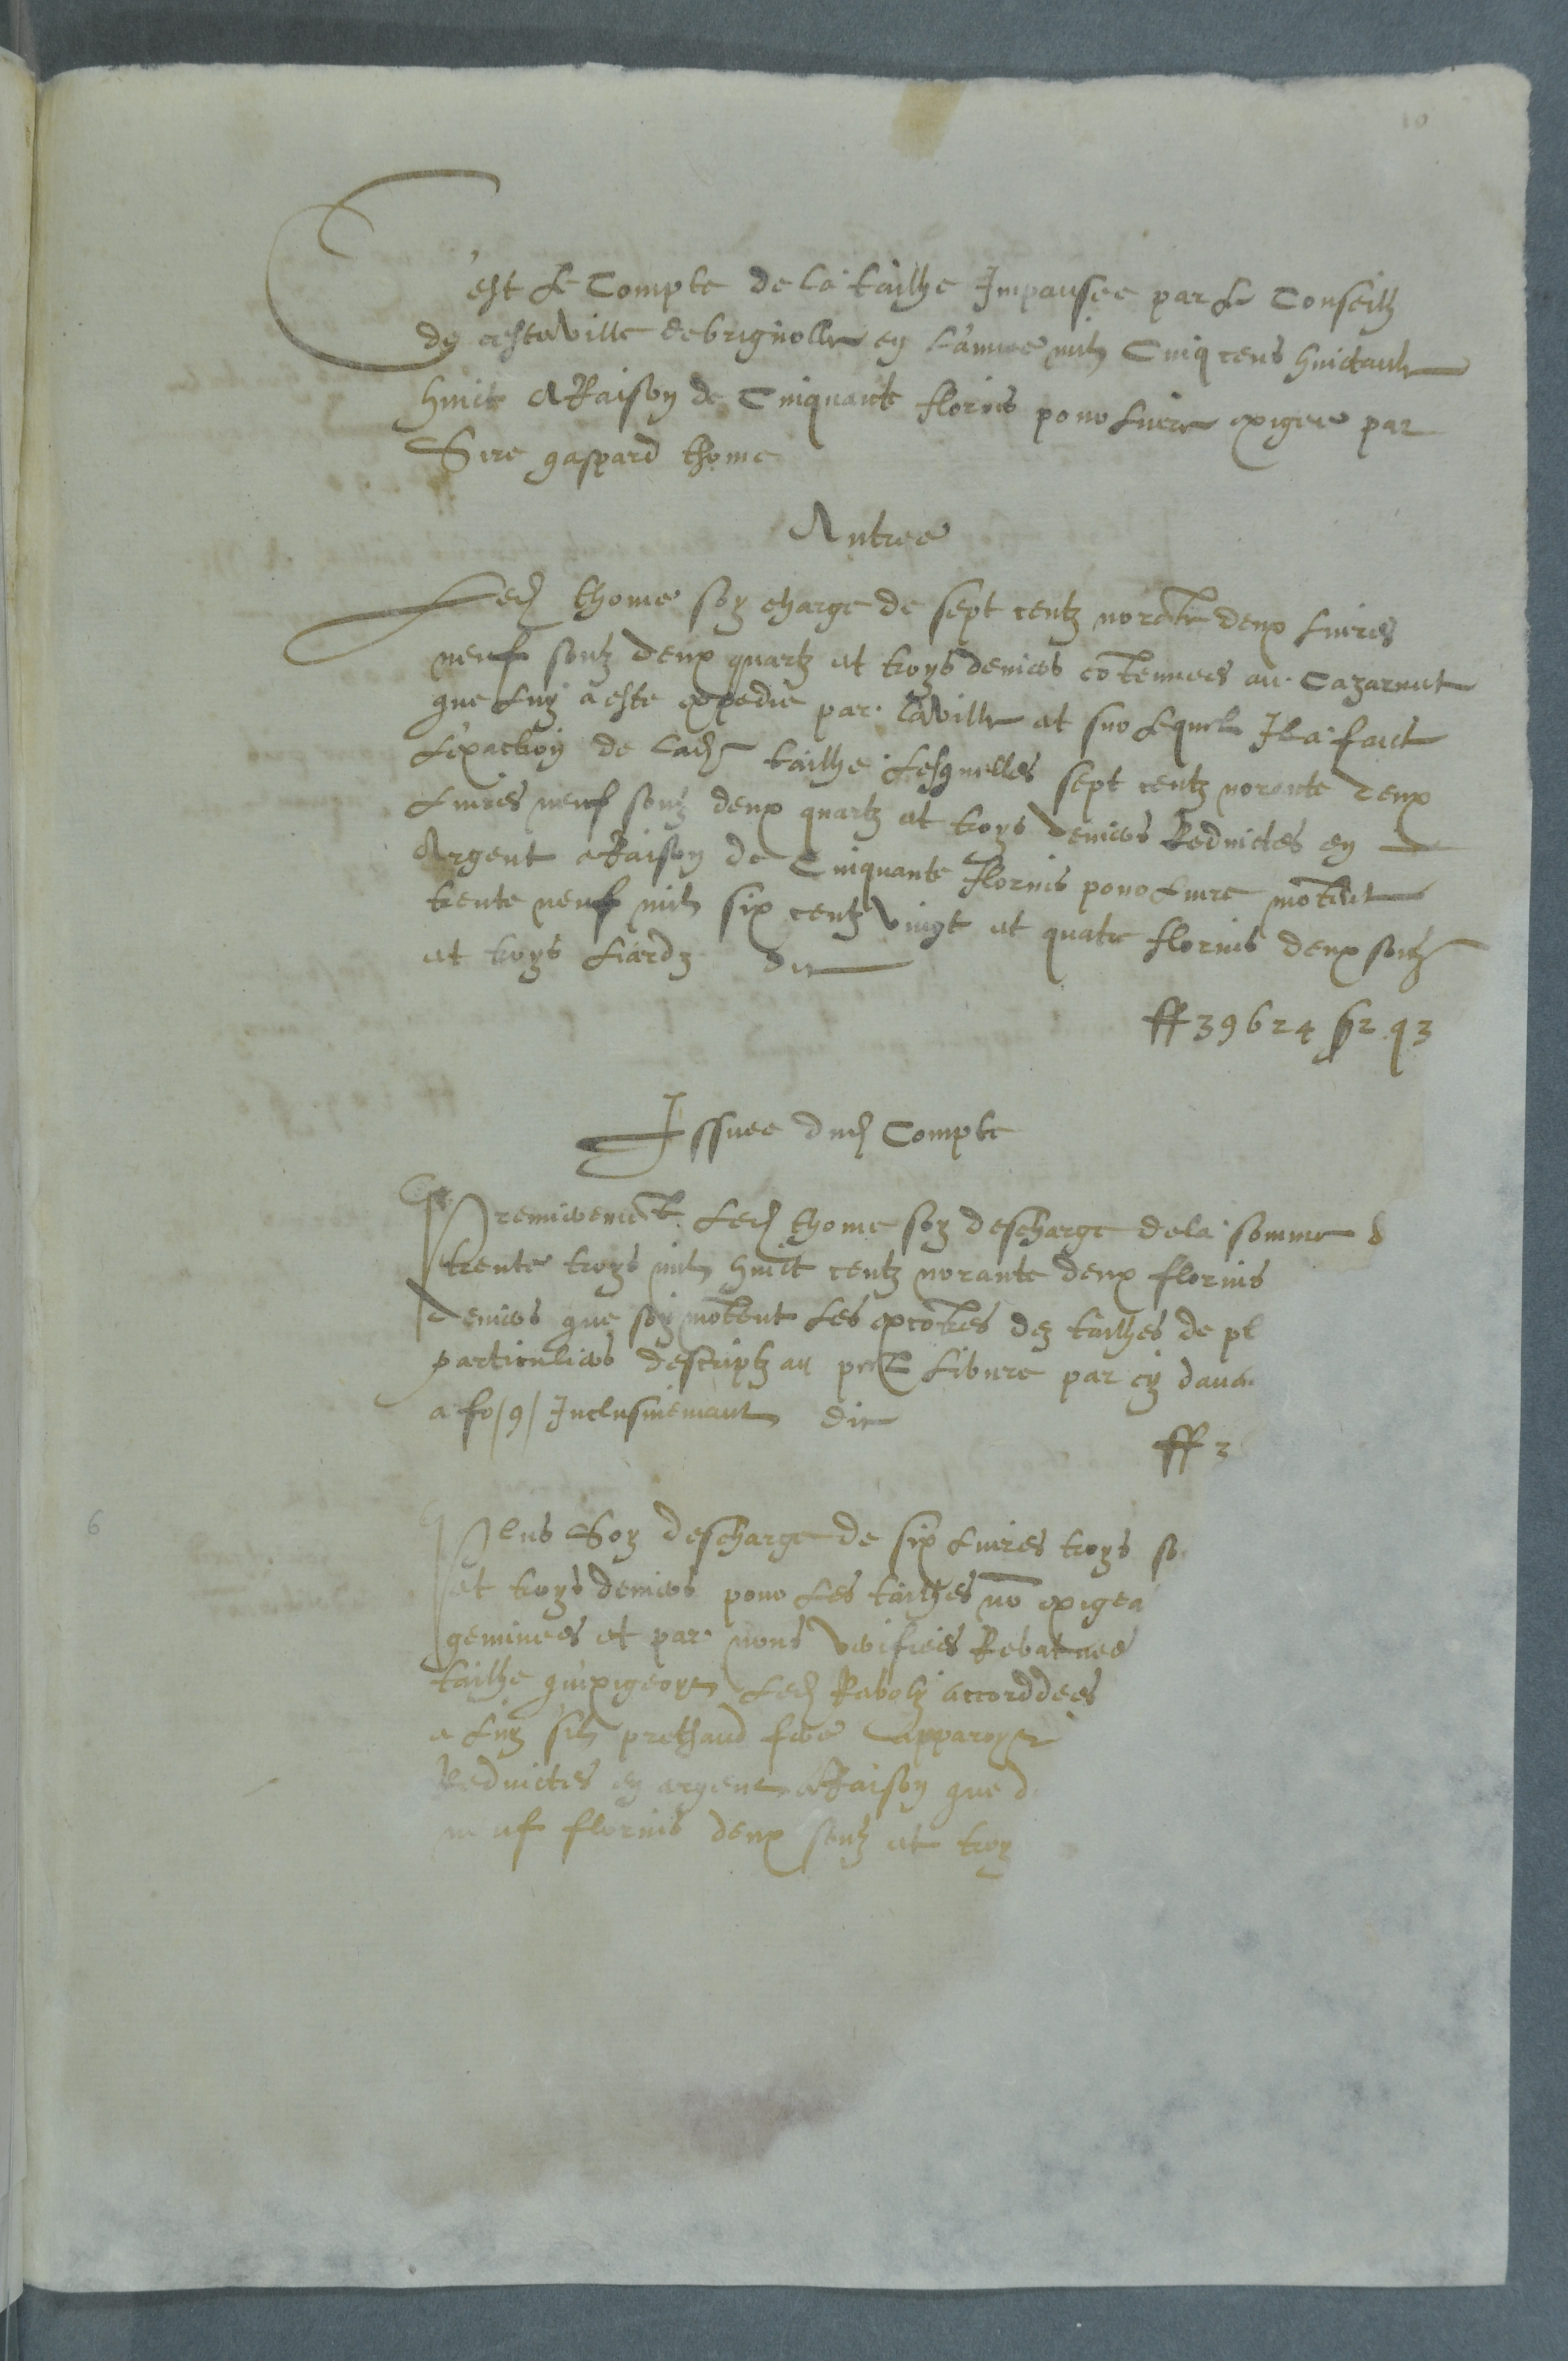 10
C'est Le Compte de la tailhe Impausee par Le Conseilh
de ceste ville de brignolle en L'annee mil Cinq cens huictante
huict A Raison de Cinquante florins pour Livre exigee par
Sire gaspard thome
Antree
Led thome soy charge de sept centz norante deux Livres
neuf souz deux quartz et troys deniers cōtenues au Cazarnet
que Luy a este expedie par la ville et sur Lequel Il a faict
L'exaction de lad tailhe Lesquelles sept centz norante deux
Livres neuf souz deux quartz et troys deniers Reduictes en
Argent a Raison de Cinquante florins pour Livre mōtent
trente neuf mil six centz vingt et quatre florins deux souz
et troys Liardz
ff 39624 s 2 q 3
Issuee dud Compte
Premieremēt Led thome soy descharge de la somme d
trente troys mil huict centz norante deux florins
deniers que soy mōtent Les des tailhes de pl
particuliers descriptz au Libvre par cy dava
a fo/9/ Inclusivemant
ff 3
6
Plus Soy descharge de six Livres troys so
et troys deniers pour Les tailhes nō exigea
geminees et par nous verifiees Rebatues
tailhe qu'exigeoyt Led accorddees
a Luy s'il prethand apparoyt
Reduictes en argent a Raison que d
neuf florins deux souz et troy